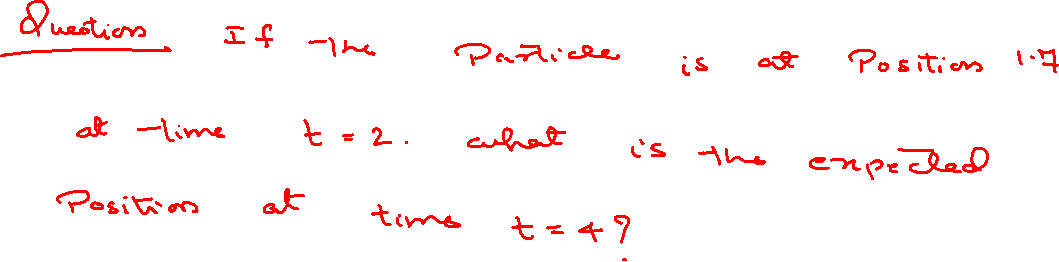 Question If the Particle is at Position 1.7
at time t = 2. what is the expected
Position at time t = 4?